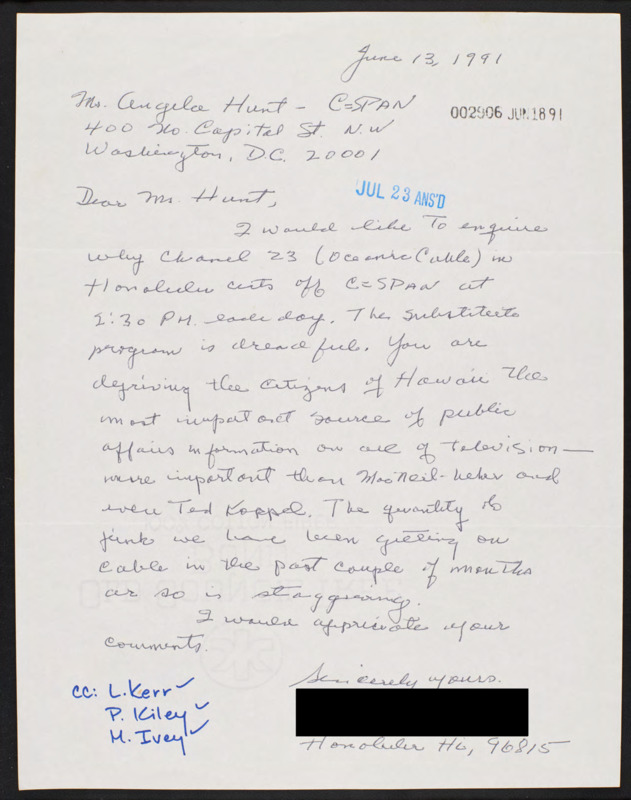 June 13, 1991
Ms. Angela Hunt - C-SPAN
400 No. Capital St. N.W
Washington, D.C. 20001
002906 JUN 18 91
Dear Ms. Hunt,
JUL 23 ANS'D
I would like To enquire
why Chanel 23 (Oceanic Cable) in
Honolulu cuts off C-SPAN at
1:30 PM. each day. The substitute
program is dreadful. You are
depriving the citizens of Hawaii the
most important source of public
affairs information on all of television—
more important than MacNeil-Leher and
even Ted Koppel. The quantity of
junk we have been getting on
cable in the past couple of months
or so is staggering.
I would appriciate your
comments.
Sincerely yours.
Honolulu Hi, 96815
cc: L. Kerr ✓
P. Kiley ✓
M. Ivey ✓